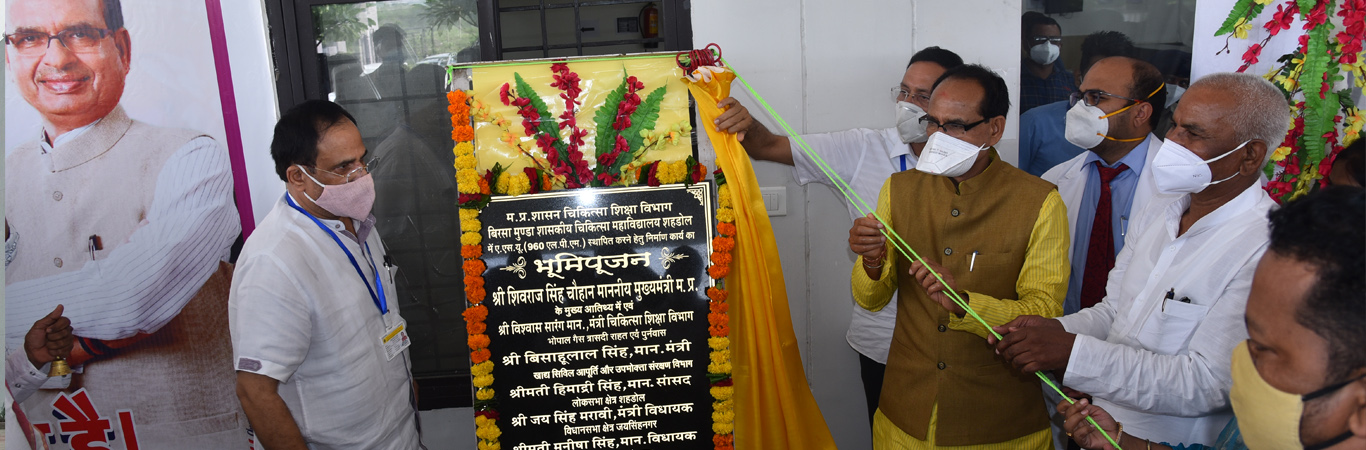 म.प्र.शासन चिकित्सा शिक्षा विभाग
बिरसा मुण्डा शासकीय चिकित्सा महाविद्यालय शहडोल
में ए.एस.यू.(960 एल.पी.एम.) स्थापित करने हेतु निर्माण कार्य का
भूमिपूजन
श्री शिवराज सिंह चौहान माननीय मुख्यमंत्री म.प्र.
के मुख्य आतिथ्य में एवं
श्री विश्वास सारंग मान.,मंत्री चिकित्सा शिक्षा विभाग
भोपाल गैस त्रासदी राहत एवं पुर्नवास
श्री बिसाहूलाल सिंह,मान.मंत्री
खाद्य सिविल आपूर्ति और उपभोक्ता संरक्षण विभाग
श्रीमती हिमाद्री सिंह,मान. सांसद
लोकसभा क्षेत्र शहडोल
श्री जय सिंह मरावी,मंत्री विधायक
विधानसभा क्षेत्र जयसिंहनगर
श्रीमती मनीषा सिंह,मान.विधायक
है!